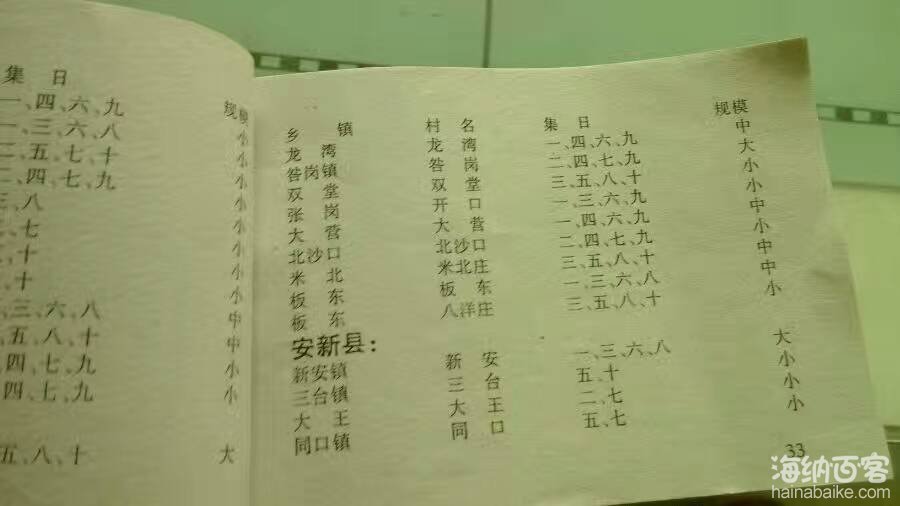 集 日 规模
一、四、六、九 小
一、三、六、八 小
二、五、七、十 小
二、四、七、九 小
三、八 小
、七 小
、十 小
、十 小
、三、六、八 中
五、八、十 中
四、七、九 小
四、七、九 小
五、八、十 大
乡 镇 村 名 集 日 规模
龙 湾 龙 湾 一、四、六、九 中
昝岗镇 昝 岗 二、四、七、九 大
双 堂 双 堂 三、五、八、十 小
张 岗 开 口 一、三、六、九 小
大 营 大 营 一、四、六、九 中
北沙口 北沙口 二、四、七、九 小
米 北 米北庄 三、五、八、十 中
板 东 板 东 一、三、六、八 中
板 东 八洋庄 三、五、八、十 小
安新县：
新安镇 新 安 一、三、六、八 大
三台镇 三 台 五、十 小
大 王 大 王 二、七 小
同口镇 同 口 五、七 小
33
海纳百客
hainabaike.com